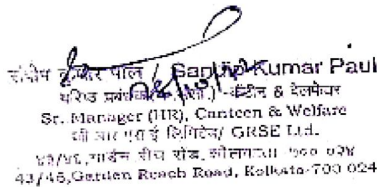 संदीप कुमार पाल / Sandip Kumar Paul
वरिष्ठ प्रबंधक (मा.सं.) कैंटीन & वेलफेयर
Sr. Manager (HR), Canteen & Welfare
जी आर एस ई लिमिटेड/ GRSE Ltd.
४३/४६, गार्डन रीच रोड, कोलकाता ७०० ०२४
43/46, Garden Reach Road, Kolkata-700 024